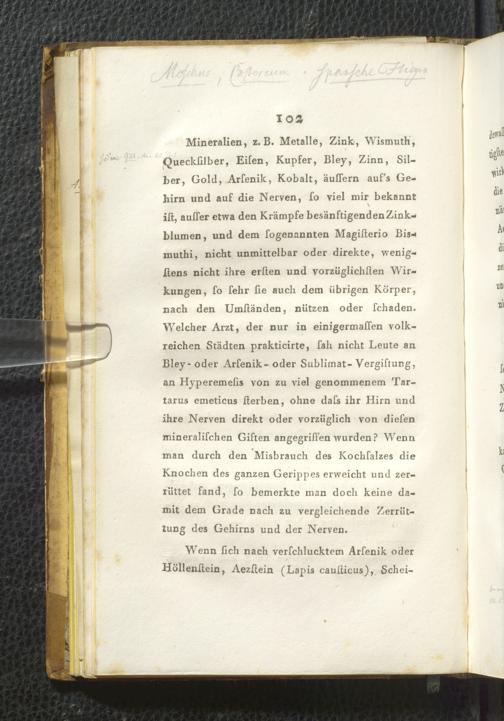 Moschus, Castoreum . Spansche Fliegen
102
Mineralien, z. B. Metalle, Zink, Wismuth,
Queckſilber, Eiſen, Kupfer, Bley, Zinn, Sil-
ber, Gold, Arſenik, Kobalt, äuſſern auf's Ge-
hirn und auf die Nerven, ſo viel mir bekannt
iſt, auſſer etwa den Krämpfe beſänftigenden Zink-
blumen, und dem ſogenannten Magiſterio Bis-
muthi, nicht unmittelbar oder direkte, wenig-
ſtens nicht ihre erſten und vorzüglichſten Wir-
kungen, ſo ſehr ſie auch dem übrigen Körper,
nach den Umſtänden, nützen oder ſchaden.
Welcher Arzt, der nur in einigermaſſen volk-
reichen Städten prakticirte, ſah nicht Leute an
Bley- oder Arſenik- oder Sublimat-Vergiftung,
an Hyperemeſis von zu viel genommenem Tar-
tarus emeticus ſterben, ohne daſs ihr Hirn und
ihre Nerven direkt oder vorzüglich von dieſen
mineraliſchen Giften angegriffen wurden? Wenn
man durch den Misbrauch des Kochſalzes die
Knochen des ganzen Gerippes erweicht und zer-
rüttet fand, ſo bemerkte man doch keine da-
mit dem Grade nach zu vergleichende Zerrüt-
tung des Gehirns und der Nerven.
Wenn ſich nach verſchlucktem Arſenik oder
Höllenſtein, Aezſtein (Lapis cauſticus), Schei-